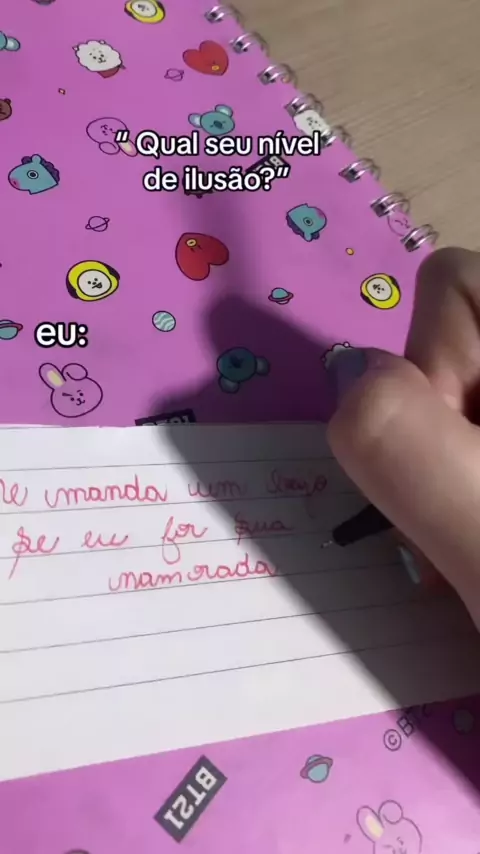 “ Qual seu nível
de ilusão?”
eu:
BT21
me manda um beijo
se eu for sua
namorada
©BT
BT21